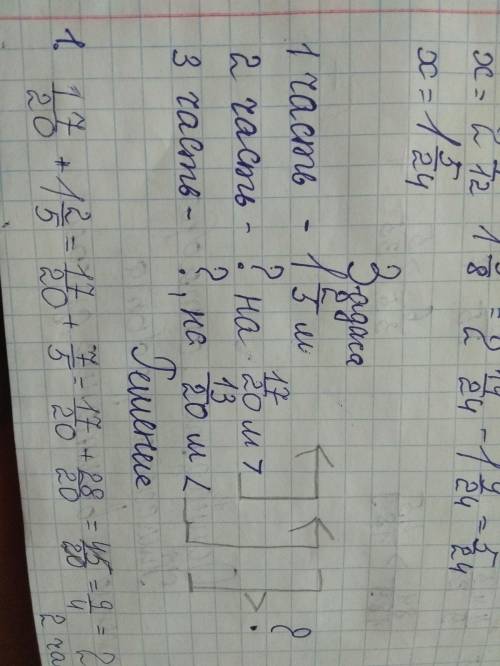 x = 2 7/12 1 3/8 = 2 14/24 - 1 9/24 = 5/24
x = 1 5/24
Задача
1 часть - 1 2/5 м
2 часть - ? на 17/20 м > ?
3 часть - ?, на 13/20 м <
Решение
1. 17/20 + 1 2/5 = 17/20 + 7/5 = 17/20 + 28/20 = 45/20 = 9/4 = 2
2 ча